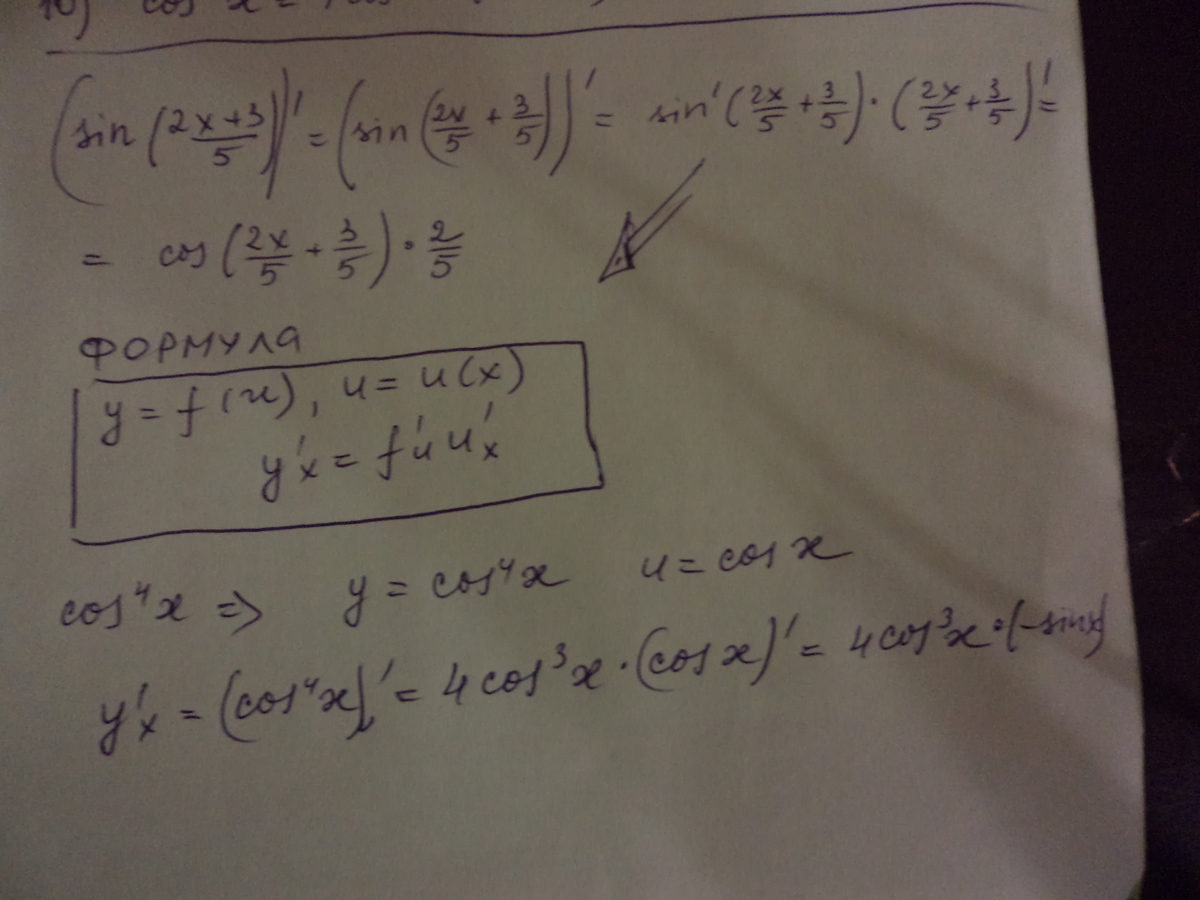 10) cos x =
(sin (2x+3/5))' = (sin (2x/5 + 3/5))' = sin' (2x/5 + 3/5) · (2x/5 + 3/5)' =
= cos (2x/5 + 3/5) · 2/5
ФОРМУЛА
y = f(u), u = u(x)
y'x = f'u u'x
cos⁴x => y = cos⁴x u = cos x
y'x = (cos⁴x)' = 4 cos³x · (cos x)' = 4 cos³x · (-sin x)